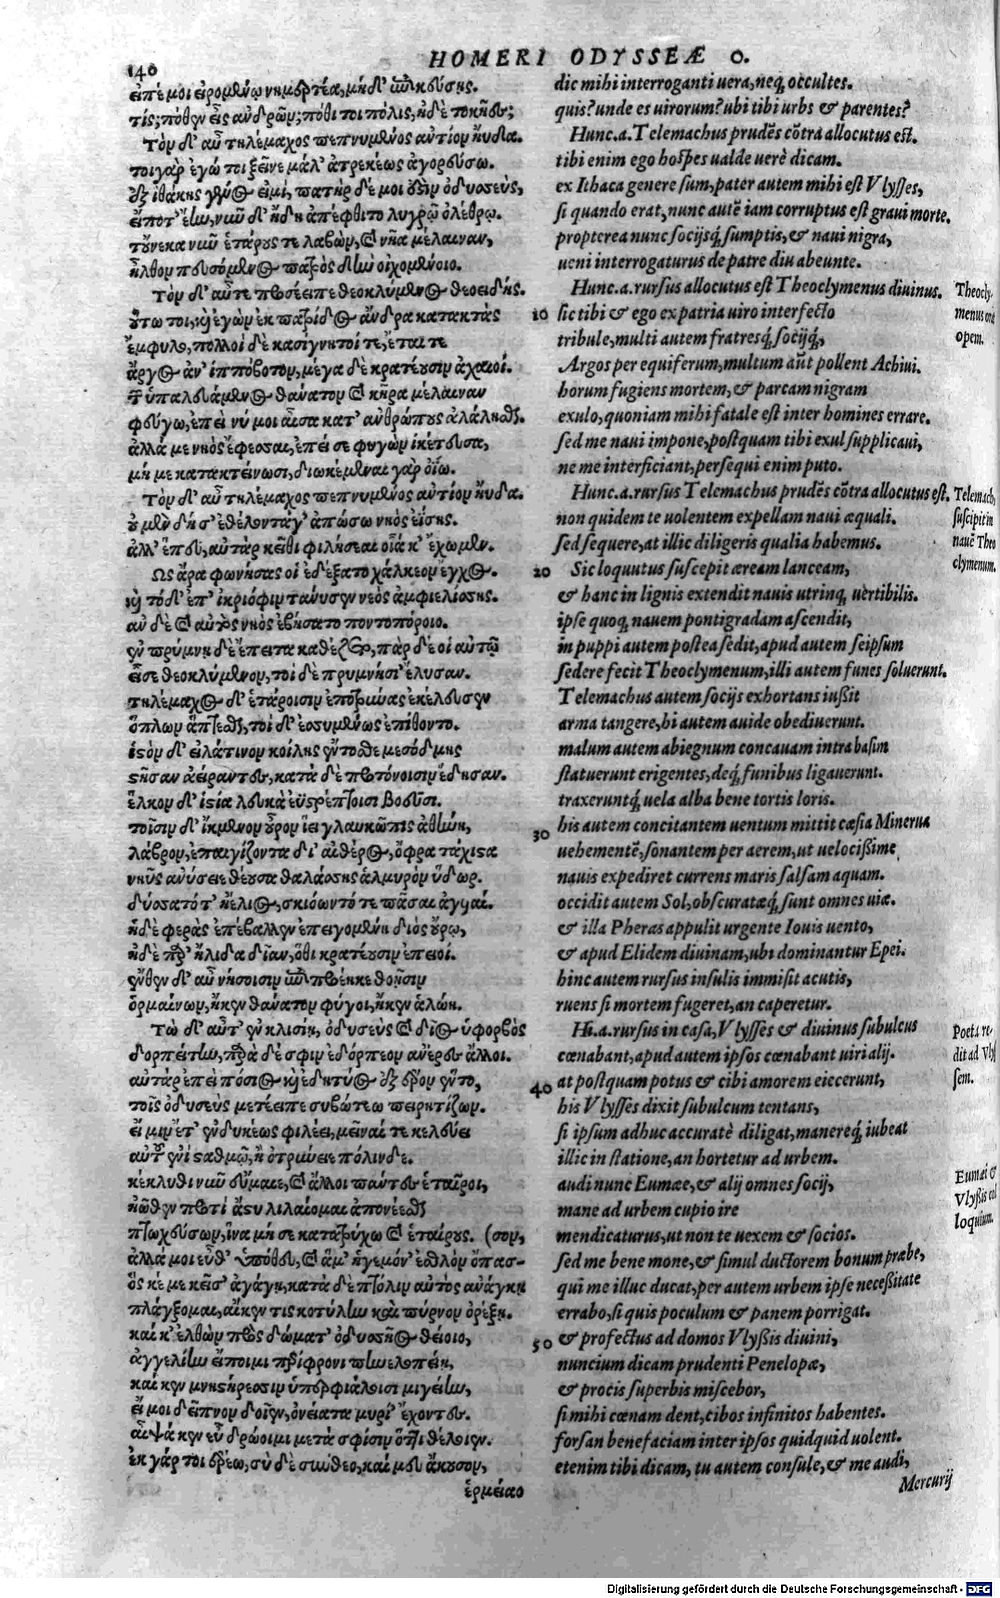 140
HOMERI ODYSSEÆ O.
εἰπέ μοι εἰρομένῳ νημερτέα, μηδ' ἐπικεύσῃς.
τίς; πόθεν εἶς ἀνδρῶν; πόθι τοι πόλις, ἠδὲ τοκῆες;
Τὸν δ' αὖ τηλέμαχος πεπνυμένος ἀντίον ηὔδα.
τοιγὰρ ἐγώ τοι ξεῖνε μάλ' ἀτρεκέως ἀγορεύσω.
ἐξ ἰθάκης γένος εἰμὶ, πατὴρ δέ μοι ἐστὶν ὀδυσσεὺς,
εἴποτ' ἔην, νῦν δ' ἤδη ἀπέφθιτο λυγρῷ ὀλέθρῳ.
τοὔνεκα νῦν ἑτάρους τε λαβὼν, καὶ νῆα μέλαιναν,
ἦλθον πευσόμενος πατρὸς δὴν οἰχομένοιο.
Τὸν δ' αὖτε προσέειπε θεοκλύμενος θεοειδής.
οὕτω τοι, καὶ ἐγὼν ἐκ πατρίδος ἄνδρα κατακτὰς
ἔμφυλον, πολλοὶ δὲ κασίγνητοί τε, ἔται τε
ἄργος ἀν' ἱππόβοτον, μέγα δὲ κρατέουσιν ἀχαιοί.
τῶν ὑπαλευάμενος θάνατον καὶ κῆρα μέλαιναν
φεύγω, ἐπεὶ νύ μοι αἶσα κατ' ἀνθρώπους ἀλάλησθαι.
ἀλλά με νηὸς ἔφεσσαι, ἐπεί σε φυγὼν ἱκέτευσα,
μή με κατακτείνωσι, διωκέμεναι γὰρ ὀΐω.
Τὸν δ' αὖ τηλέμαχος πεπνυμένος ἀντίον ηὔδα.
οὐ μὲν δή σ' ἐθέλοντά γ' ἀπώσω νηὸς ἐΐσης.
ἀλλ' ἕπευ, αὐτὰρ κεῖθι φιλήσεαι οἷά κ' ἔχωμεν.
Ὣς ἄρα φωνήσας οἱ ἐδέξατο χάλκεον ἔγχος.
καὶ τόδ' ἐπ' ἰκριόφιν τάνυσεν νεὸς ἀμφιελίσσης.
ἂν δὲ καὶ αὐτὸς νηὸς ἐβήσατο ποντοπόροιο.
ἐν πρύμνῃ δὲ ἔπειτα καθέζετο, πὰρ δὲ οἷ αὐτῷ
εἷσε θεοκλύμενον, τοὶ δὲ πρυμνήσι' ἔλυσαν.
τηλέμαχος δ' ἑτάροισιν ἐποτρύνας ἐκέλευσεν
ὅπλων ἅπτεσθαι, τοὶ δ' ἐσσυμένως ἐπίθοντο.
ἱστὸν δ' εἰλάτινον κοίλης ἔντοσθε μεσόδμης
στῆσαν ἀείραντες, κατὰ δὲ προτόνοισιν ἔδησαν.
ἕλκον δ' ἱστία λευκὰ ἐϋστρέπτοισι βοεῦσι.
τοῖσιν δ' ἴκμενον οὖρον ἵει γλαυκῶπις ἀθήνη,
λάβρον, ἐπαιγίζοντα δι' αἰθέρος, ὄφρα τάχιστα
νηῦς ἀνύσειε θέουσα θαλάσσης ἁλμυρὸν ὕδωρ.
δύσσατό τ' ἠέλιος, σκιόωντό τε πᾶσαι ἀγυιαί.
ἡ δὲ φερὰς ἐπέβαλλεν ἐπειγομένη διὸς οὔρῳ,
ἠδὲ παρ' ἤλιδα δῖαν, ὅθι κρατέουσιν ἐπειοί.
ἔνθεν δ' αὖ νήσοισιν ἐπιπροέηκε θοῇσιν
ὁρμαίνων, ἤ κεν θάνατον φύγοι, ἤ κεν ἁλώῃ.
Τὼ δ' αὖτ' ἐν κλισίῃ, ὀδυσεὺς καὶ δῖος ὑφορβὸς
δορπείτην, παρὰ δέ σφιν ἐδόρπεον ἀνέρες ἄλλοι.
αὐτὰρ ἐπεὶ πόσιος καὶ ἐδητύος ἐξ ἔρον ἕντο,
τοῖς ὀδυσεὺς μετέειπε συβώτεω πειρητίζων.
εἴ μιν ἔτ' ἐνδυκέως φιλέει, μεῖναί τε κελεύει
αὐτοῦ ἐνὶ σταθμῷ, ἢ ὀτρύνειε πόλινδε.
κέκλυθι νῦν εὔμαιε, καὶ ἄλλοι πάντες ἑταῖροι,
ἠῶθεν προτὶ ἄστυ λιλαίομαι ἀπονέεσθαι
πτωχεύσων, ἵνα μή σε κατατρύχω καὶ ἑταίρους. (σον,
ἀλλά μοι εὖθ' ὑπόθευ, καὶ ἅμ' ἡγεμόν' ἐσθλὸν ὄπασ-
ὅς κέ με κεῖσ' ἀγάγῃ, κατὰ δὲ πτόλιν αὐτὸς ἀνάγκῃ
πλάγξομαι, αἴ κεν τις κοτύλην καὶ πύρνον ὀρέξῃ.
καί κ' ἐλθὼν πρὸς δώματ' ὀδυσσῆος θείοιο,
ἀγγελίην εἴποιμι περίφρονι πηνελοπείῃ,
καί κεν μνηστήρεσσιν ὑπερφιάλοισι μιγείην,
εἴ μοι δεῖπνον δοῖεν, ὀνείατα μυρί' ἔχοντες.
αἶψά κεν εὖ δρώοιμι μετὰ σφίσιν ὅττι θέλοιεν.
ἐκ γάρ τοι ἐρέω, σὺ δὲ σύνθεο, καί μευ ἄκουσον,
ἑρμείαο
dic mihi interroganti uera, neq; occultes.
quis? unde es uirorum? ubi tibi urbs & parentes?
Hunc. a. Telemachus prudēs cōtra allocutus est.
tibi enim ego hospes ualde uerè dicam.
ex Ithaca genere sum, pater autem mihi est Vlysses,
si quando erat, nunc autē iam corruptus est graui morte.
propterea nunc socijsq; sumptis, & naui nigra,
ueni interrogaturus de patre diu abeunte.
Hunc. a. rursus allocutus est Theoclymenus diuinus.
10 sic tibi & ego ex patria uiro interfecto
tribule, multi autem fratresq; socijq;,
Argos per equiferum, multum aūt pollent Achiui.
horum fugiens mortem, & parcam nigram
exulo, quoniam mihi fatale est inter homines errare.
sed me naui impone, postquam tibi exul supplicaui,
ne me interficiant, persequi enim puto.
Hunc. a. rursus Telemachus prudēs cōtra allocutus est.
non quidem te uolentem expellam naui æquali.
sed sequere, at illic diligeris qualia habemus.
20 Sic loquutus suscepit æream lanceam,
& hanc in lignis extendit nauis utrinq; uèrtibilis.
ipse quoq; nauem pontigradam ascendit,
in puppi autem postea sedit, apud autem seipsum
sedere fecit Theoclymenum, illi autem funes soluerunt.
Telemachus autem socijs exhortans iußit
arma tangere, hi autem auide obediuerunt.
malum autem abiegnum concauam intra basim
statuerunt erigentes, deq; funibus ligauerunt.
traxeruntq; uela alba bene tortis loris.
30 his autem concitantem uentum mittit cæsia Minerua
uehementē, sonantem per aerem, ut uelocißime
nauis expediret currens maris salsam aquam.
occidit autem Sol, obscuratæq; sunt omnes uiæ.
& illa Pheras appulit urgente Iouis uento,
& apud Elidem diuinam, ubi dominantur Epei.
hinc autem rursus insulis immisit acutis,
ruens si mortem fugeret, an caperetur.
Hi. a. rursus in casa, Vlysses & diuinus subulcus
cœnabant, apud autem ipsos cœnabant uiri alij.
40 at postquam potus & cibi amorem eiecerunt,
his Vlysses dixit subulcum tentans,
si ipsum adhuc accuratè diligat, manereq; iubeat
illic in statione, an hortetur ad urbem.
audi nunc Eumæe, & alij omnes socij,
mane ad urbem cupio ire
mendicaturus, ut non te uexem & socios.
sed me bene mone, & simul ductorem bonum præbe,
qui me illuc ducat, per autem urbem ipse neceßitate
errabo, si quis poculum & panem porrigat.
50 & profectus ad domos Vlyßis diuini,
nuncium dicam prudenti Penelopæ,
& procis superbis miscebor,
si mihi cœnam dent, cibos infinitos habentes.
forsan benefaciam inter ipsos quidquid uolent.
etenim tibi dicam, tu autem consule, & me audi,
Mercurij
Theocly-
menus orat
opem.
Telemach,
suscipit in
nauē Theo
clymenum.
Poeta re-
dit ad Vlys
sem.
Eumæi &
Vlyßis col
loquium.
Digitalisierung gefördert durch die Deutsche Forschungsgemeinschaft - DFG